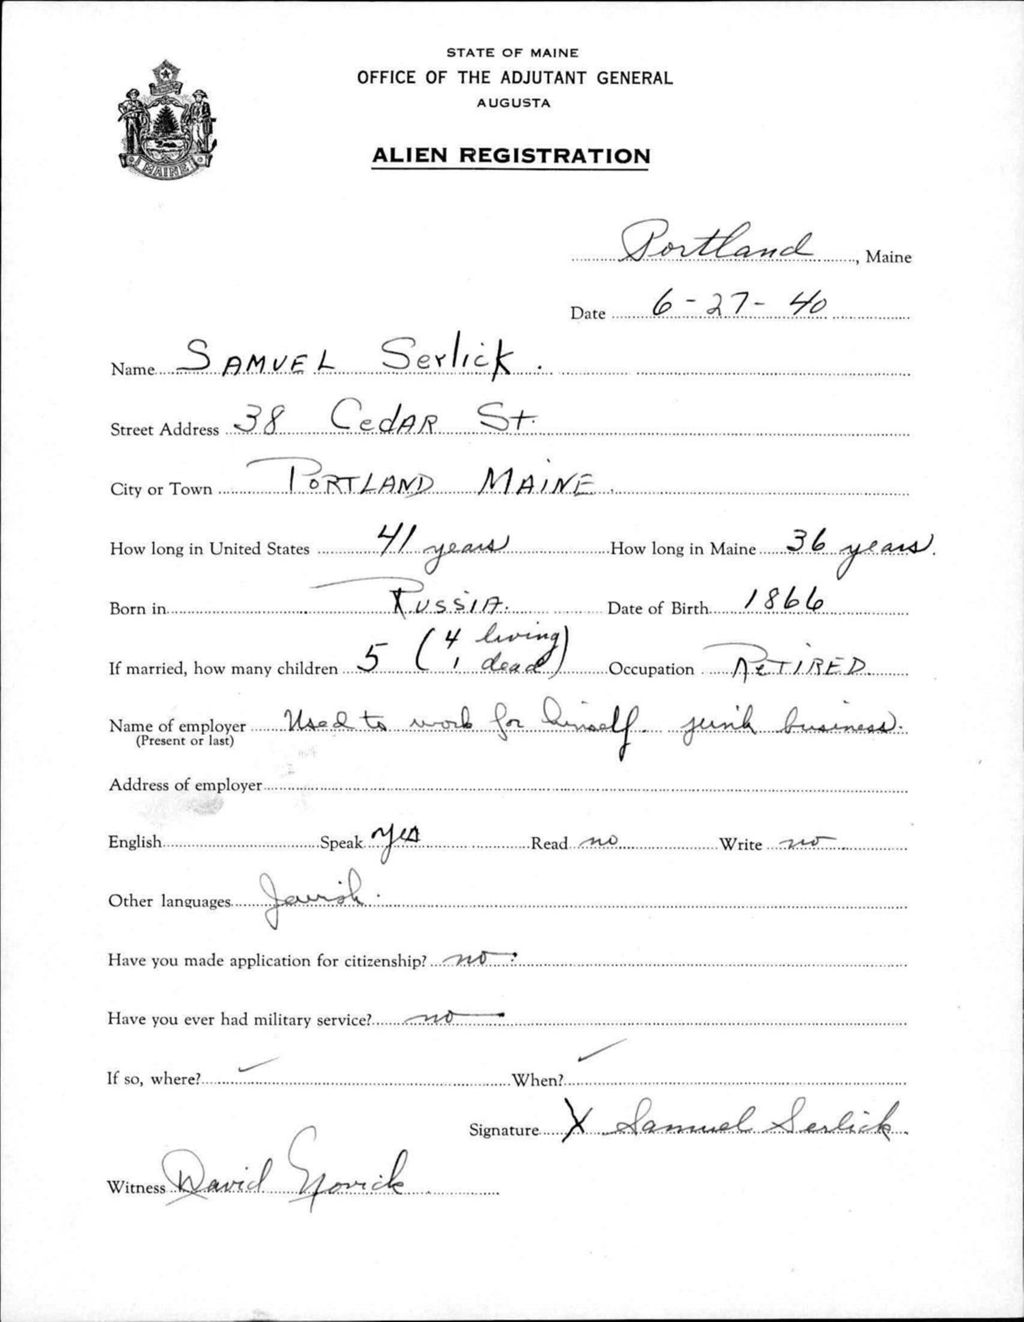 STATE OF MAINE
OFFICE OF THE ADJUTANT GENERAL
AUGUSTA
ALIEN REGISTRATION
MAINE
Portland, Maine
Date 6-27-40
Name SAMUEL Serlick.
Street Address 38 CedAR St.
City or Town PORTLAND MAINE
How long in United States 41 years How long in Maine 36 years.
Born in RUSSIA. Date of Birth 1866
If married, how many children 5 (4 living 1 dead) Occupation RETIRED
Name of employer Used to work for himself. junk business.
(Present or last)
Address of employer
English Speak yes Read no Write no
Other languages Jewish.
Have you made application for citizenship? no.
Have you ever had military service? no
If so, where? When?
Signature X Samuel Serlick
Witness David